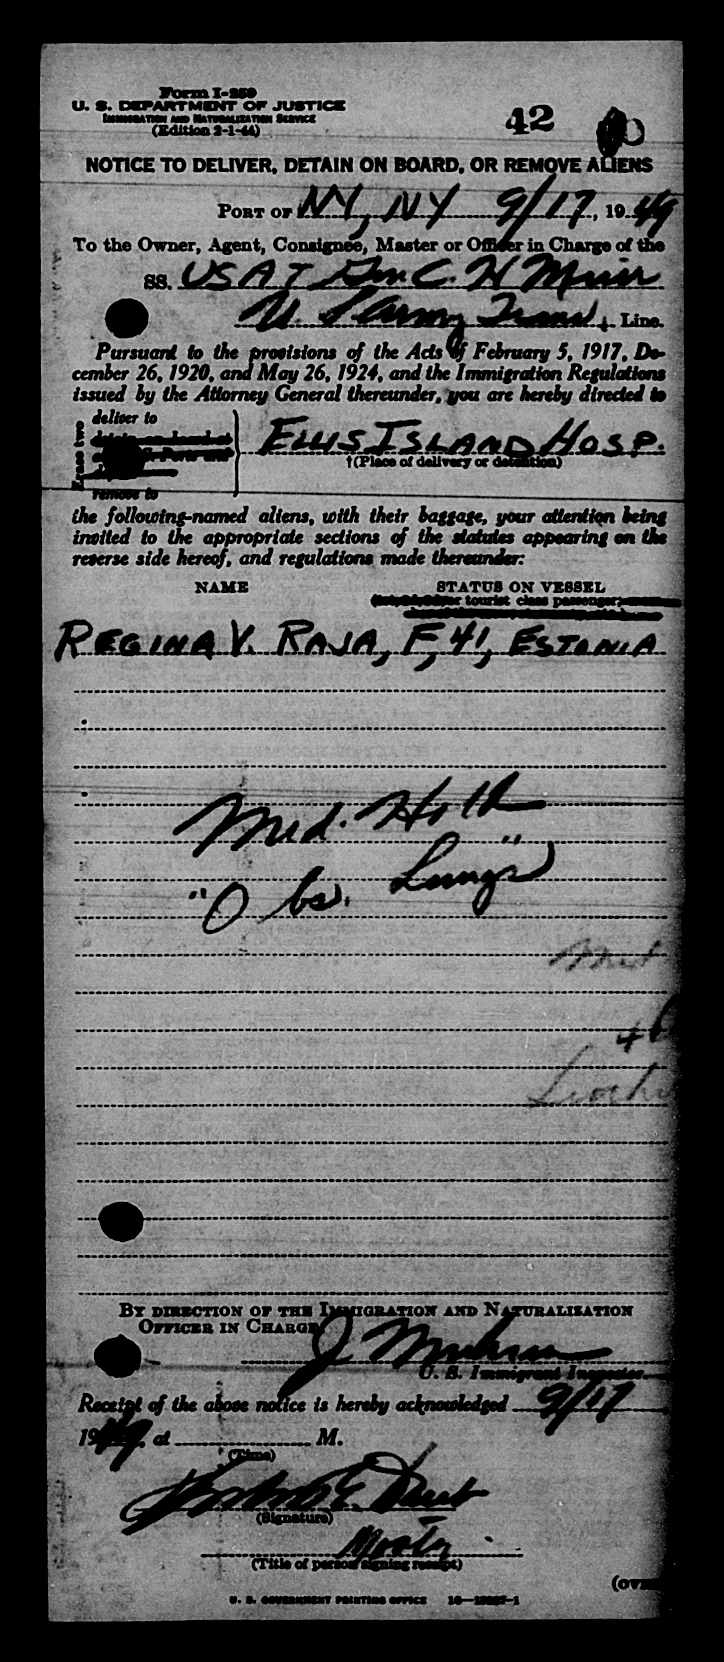 Form I-259
U. S. DEPARTMENT OF JUSTICE
IMMIGRATION AND NATURALIZATION SERVICE
(Edition 2-1-44)
42
NOTICE TO DELIVER, DETAIN ON BOARD, OR REMOVE ALIENS
PORT OF NY, NY 9/17, 1949
To the Owner, Agent, Consignee, Master or Officer in Charge of the
SS. USAT Gen C. H Muir
U. S Army Trans. Line.
Pursuant to the provisions of the Acts of February 5, 1917, De-
cember 26, 1920, and May 26, 1924, and the Immigration Regulations
issued by the Attorney General thereunder, you are hereby directed to
Erase two
deliver to
ELLIS ISLAND HOSP.
†(Place of delivery or detention)
remove to
the following-named aliens, with their baggage, your attention being
invited to the appropriate sections of the statutes appearing on the
reverse side hereof, and regulations made thereunder:
NAME STATUS ON VESSEL
or tourist class passenger;
REGINA V. RAJA, F, 41, ESTONIA
Med. Hold
"Obs. Lungs"
Med
BY DIRECTION OF THE IMMIGRATION AND NATURALIZATION
OFFICER IN CHARGE
J
U. S. Immigrant Inspector.
Receipt of the above notice is hereby acknowledged 9/17
1949 at M.
(Time)
(Signature)
(Title of person signing receipt)
(OVER
U. S. GOVERNMENT PRINTING OFFICE